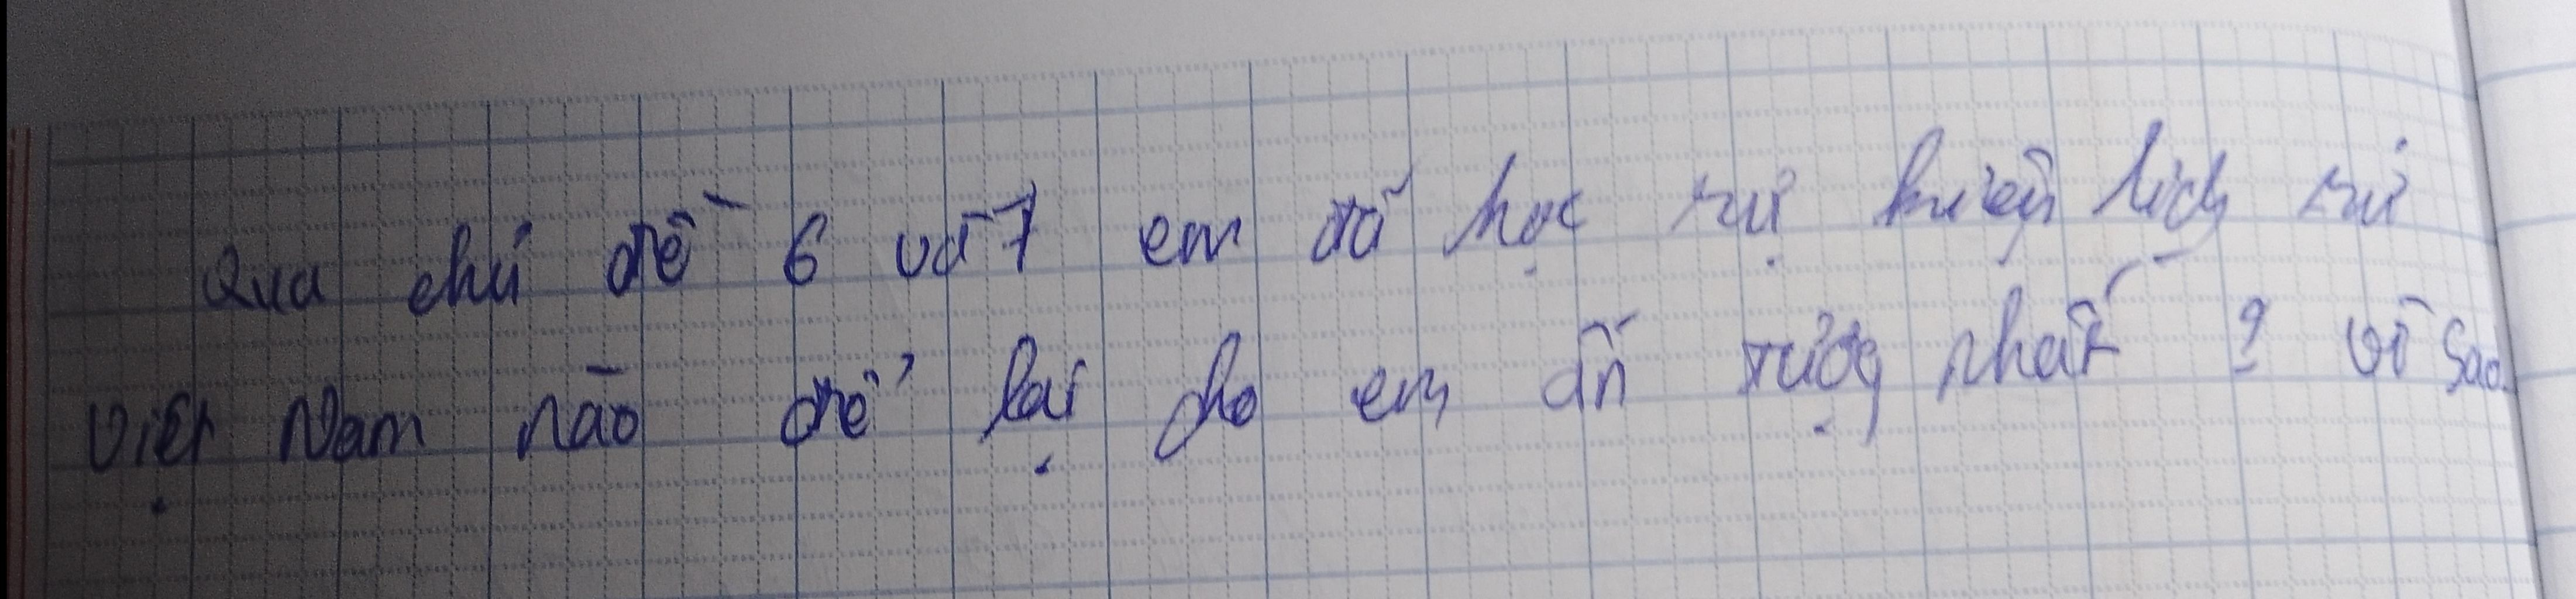 Qua chủ đề 6 và 7 em đã học sự kiện lịch sử
Việt Nam nào để lại cho em ấn tượng nhất ? vì sao.